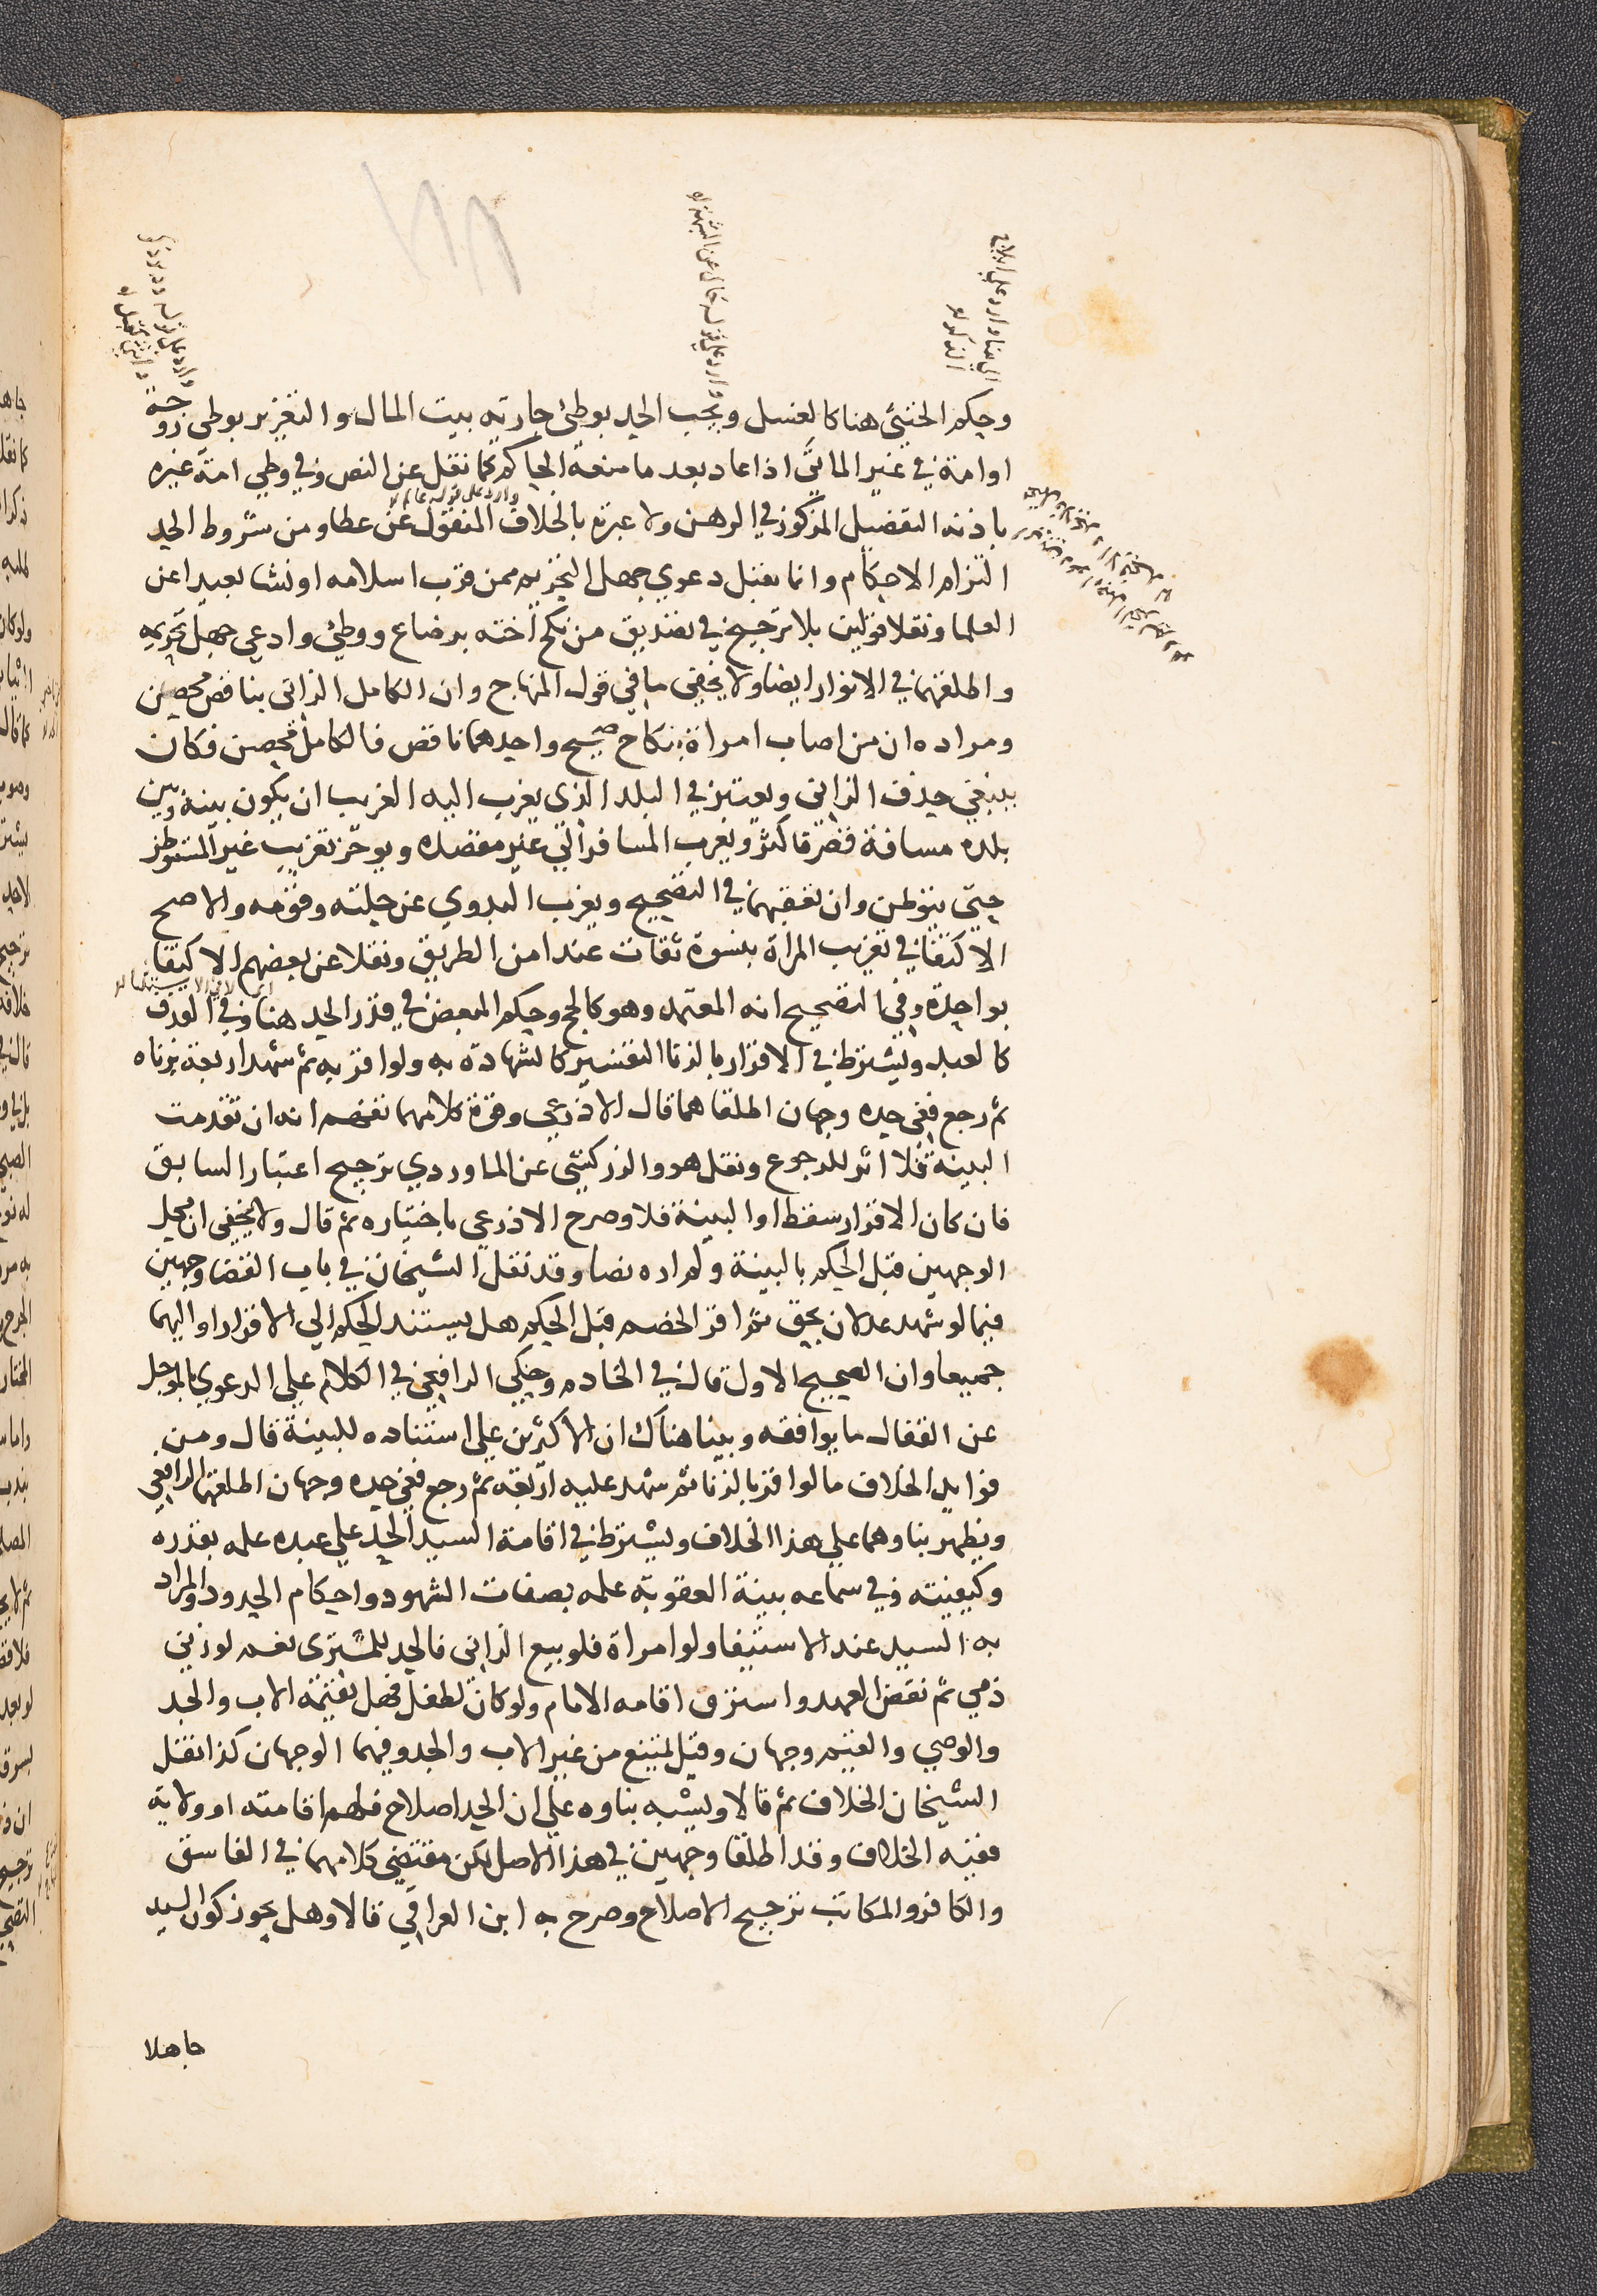 وحكم الخنثى هنا كالغسل ويجب الحد بوطئ جارية بيت المال والتعزير بوطئ زوجة
او امة في غير الماتى اذا عاد بعد ما منعه الحاكم كما نقل عن النص وفي وطي امة غيره
باذنه التفصيل المذكور في الرهن ولا عبرة بالخلاف المنقول عن عطا ومن شروط الحد
التزام الاحكام وانما يقبل دعوي جهل التحريم ممن قرب اسلامه او نشا بعيدا عن
العلما ونقلا قولين بلا ترجيح في تصديق من نكح اخته برضاع ووطئ وادعي جهل تحريمه
واطلقهما في الانوار ايضا ولا يخفى ما في قول المنهاج وان الكامل الزاني بناقص محصن
ومراده ان من اصاب امراة بنكاح صحيح واحدهما ناقص فالكامل محصن فكان
ينبغي حذف الزاني ويعتبر في البلد الذي يغرب اليه الغريب ان يكون بينه وبين
بلده مسافة قصر فاكثر ويغرب المسافر الي غير مقصده ويوخر تغريب غير المستوطن
حتى يتوطن وان تعقبهما في التصحيح ويغرب البدوي عن حلته وقومه والاصح
الاكتفا في تغريب المراة بنسوة ثقات عند امن الطريق ونقلا عن بعضهم الاكتفا
بواحدة وفي التصحيح انه المعتمد وهو كالحج وحكم المبعض في قدر الحد هنا وفي القذف
كالعبد ويشترط في الاقرار بالزنا التفسير كالشهادة به ولو اقر به ثم شهد اربعة بزناه
ثم رجع ففي حده وجهان اطلقاهما قال الاذرعي وقوة كلامهما تفهم انه ان تقدمت
البينة فلا اثر للرجوع ونقل هو والزركشي عن الماوردي ترجيح اعتبار السابق
فان كان الاقرار سقط او البينة فلا وصرح الاذرعي باختياره ثم قال ولا يخفى ان محل
الوجهين قبل الحكم بالبينة ولم اره نصا وقد نقل الشيخان في باب القضا وجهين
فيما لو شهد عدلان بحق ثم اقر الخصم قبل الحكم هل يستند الحكم الي الاقرار او اليهما
جميعا وان الصحيح الاول قال في الخادم وحكي الرافعي في الكلام علي الدعوي بالموجل
عن القفال ما يوافقه وبينا هناك ان الاكثرين علي استناده للبينة قال ومن
فوايد الخلاف ما لو اقر بالزنا ثم شهد عليه اربعة ثم رجع ففي حده وجهان اطلقهما الرافعي
ويظهر بناوهما علي هذا الخلاف ويشترط في اقامة السيد الحد علي عبده علمه بقدره
وكيفيته وفي سماعه بينة العقوبة علمه بصفات الشهود واحكام الحدود والمراد
به السيد عند الاستيفا ولو امراة فلو بيع الزاني فالحد للمشتري نعم لو زنى
ذمي ثم نقض العهد واسترق اقامه الامام ولو كان لطفل فهل يقيمه الاب والجد
والوصي والقيم وجهان وقيل يمتنع من غير الاب والجد وفيهما الوجهان كذا نقل
الشيخان الخلاف ثم قالا ويشبه بناوه علي ان الحد اصلاح فلهم اقامته او ولاية
ففيه الخلاف وقد اطلقا وجهين في هذا الاصل لكن مقتضى كلامهما في الفاسق
والكافر والمكاتب ترجيح الاصلاح وصرح به ابن العراقي قالا وهل يجوز كون السيد
جاهلا